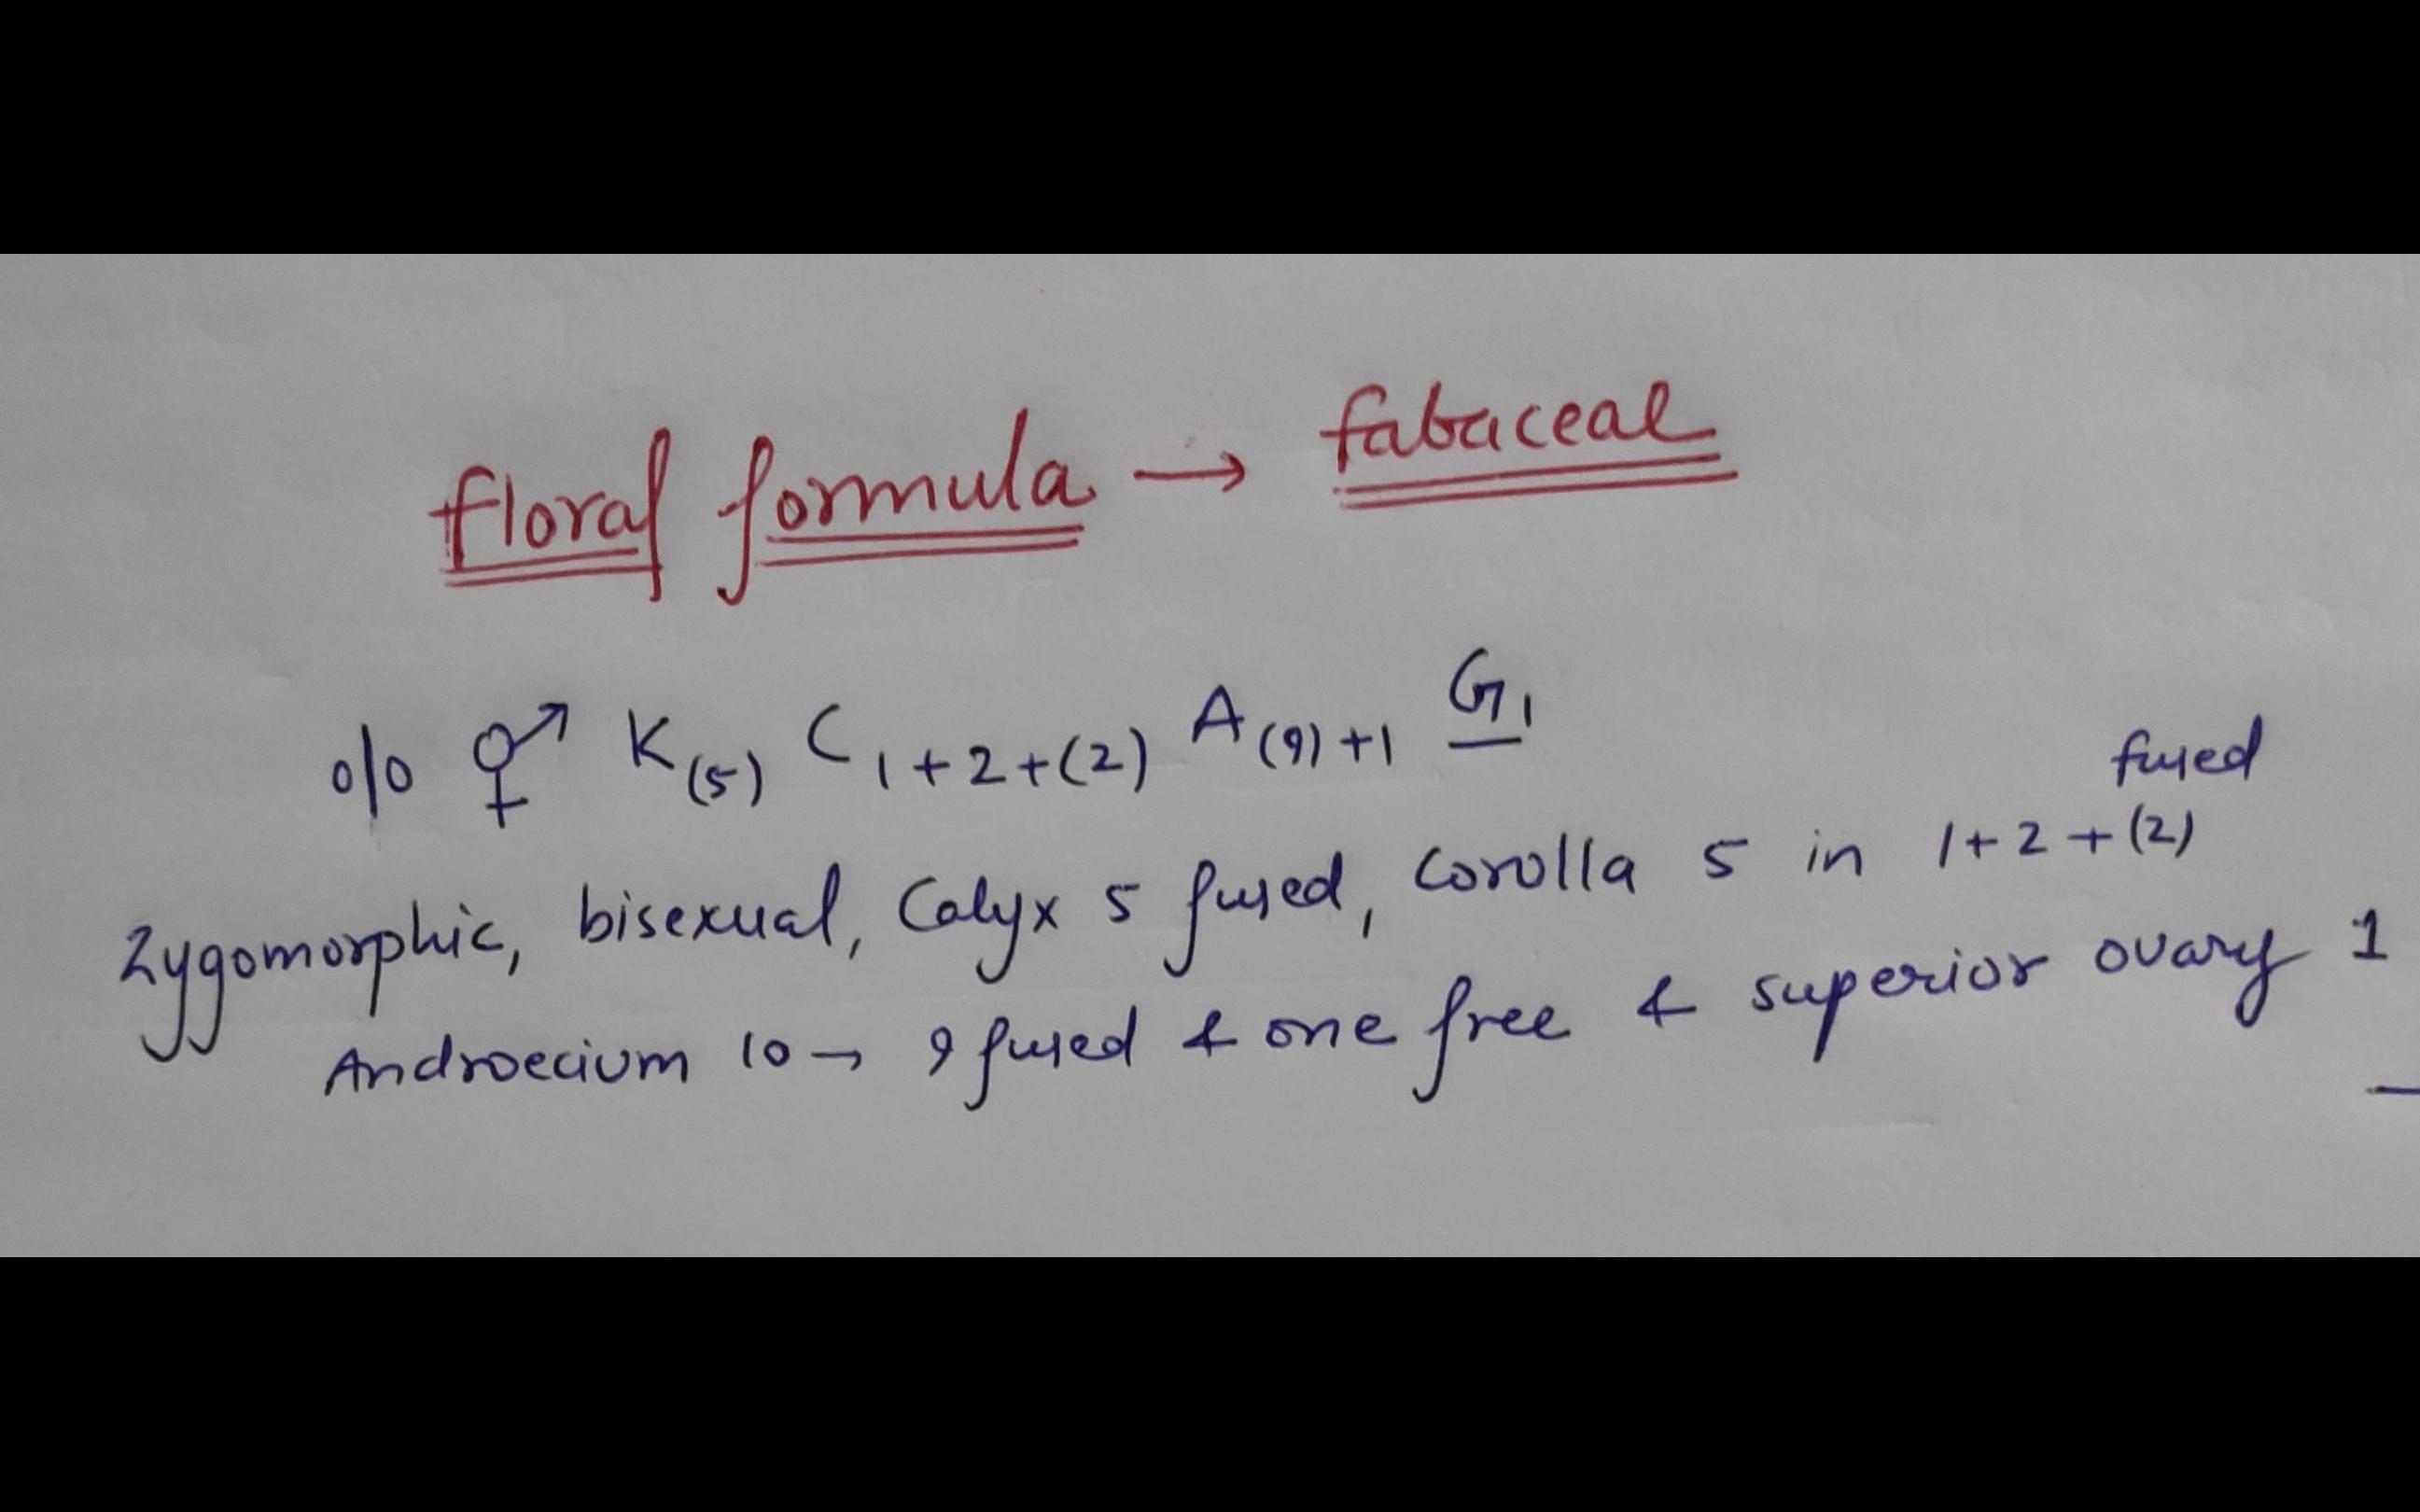 floral formula → fabaceae
o|o ⚥ K(5) C1+2+(2) A(9)+1 G1
fused
Zygomorphic, bisexual, Calyx 5 fused, Corolla 5 in 1+2+(2)
Androecium 10 → 9 fused & one free & superior ovary 1